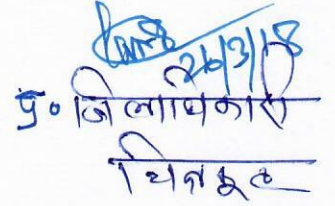 26/3/18
प्र० जिलाधिकारी
चित्रकूट